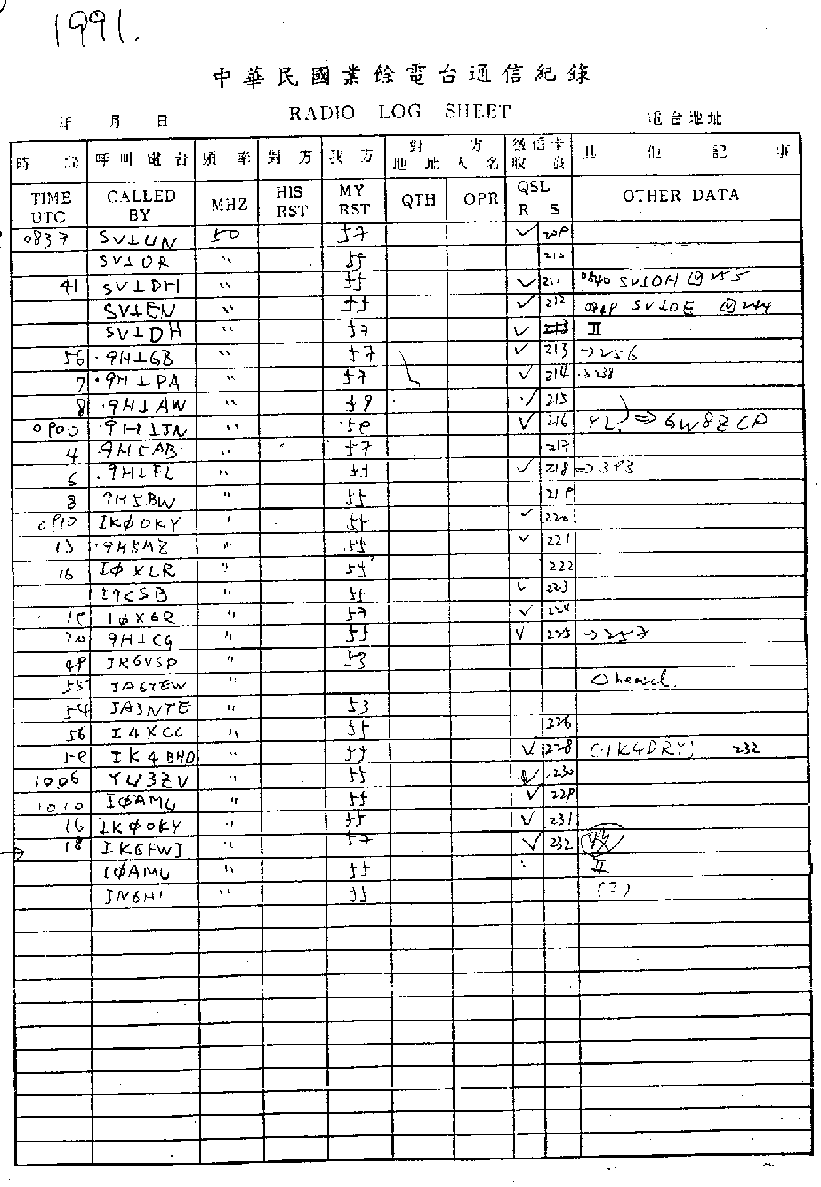 1991.
中華民國業餘電台通信紀錄
RADIO LOG SHEET
年 月 日 電台地址
時 間 呼叫電台 頻率 對方 我方 對方 地址 人名 收 其他記事
TIME UTC CALLED BY MHZ HIS RST MY RST QTH OPR QSL R S OTHER DATA
0837 SV1UN 50 57 ✓ 209
SV1OR " 55 210
41 SV1DH " 55 ✓ 211 0840 SV1OH
SV1EN " 55 ✓ 212 SV1OE
SV1DH " 57 ✓ II
56 9H1GB " 57 ✓ 213 →256
7 9H1PA " 57 ✓ 214 →238
8 9H1AW " 59 ✓ 215
0900 9H1JN " 59 ✓ 216 YL. ⇒ GW8ZCP
4 9H5AB " 57 217
6 9H1FL " 55 ✓ 218 →393
8 9H5BW " 55 219
0910 IKØOKY " 55 ✓ 220
13 9H5MZ " 55 ✓ 221
16 IØXLR " 55 222
" 55 ✓ 223
19 IØXGR " 57 ✓ 224
20 9H1CG " 55 ✓ 225 →257
49 JR6VSP " 53
JA6TEW " heard.
54 JA3NTE " 53
56 I4XCC " 55 226
59 IK4BHO " 55 ✓ 228 (IK4DRY) 232
1006 YU3ZV " 55 ✓ 230
1010 IØAMU " 55 ✓ 229
16 IKØOKY " 55 ✓ 231
18 " 57 ✓ 232
IØAMU " 55 II
" 55 (?)